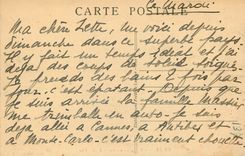 CARTE POSTALE
Mardi
Ma chère Lette, me voici depuis
dimanche dans ce superbe pays.
Il y fait un temps idéal et j'ai
déjà des coups de soleil
Je prends des bains 2 fois par
jour. c'est épatant. Depuis que
je suis arrivée la famille
me trimballe en auto. Je suis
déjà allée à Cannes, à Antibes et
à Monte-Carlo. c'est vraiment chouette